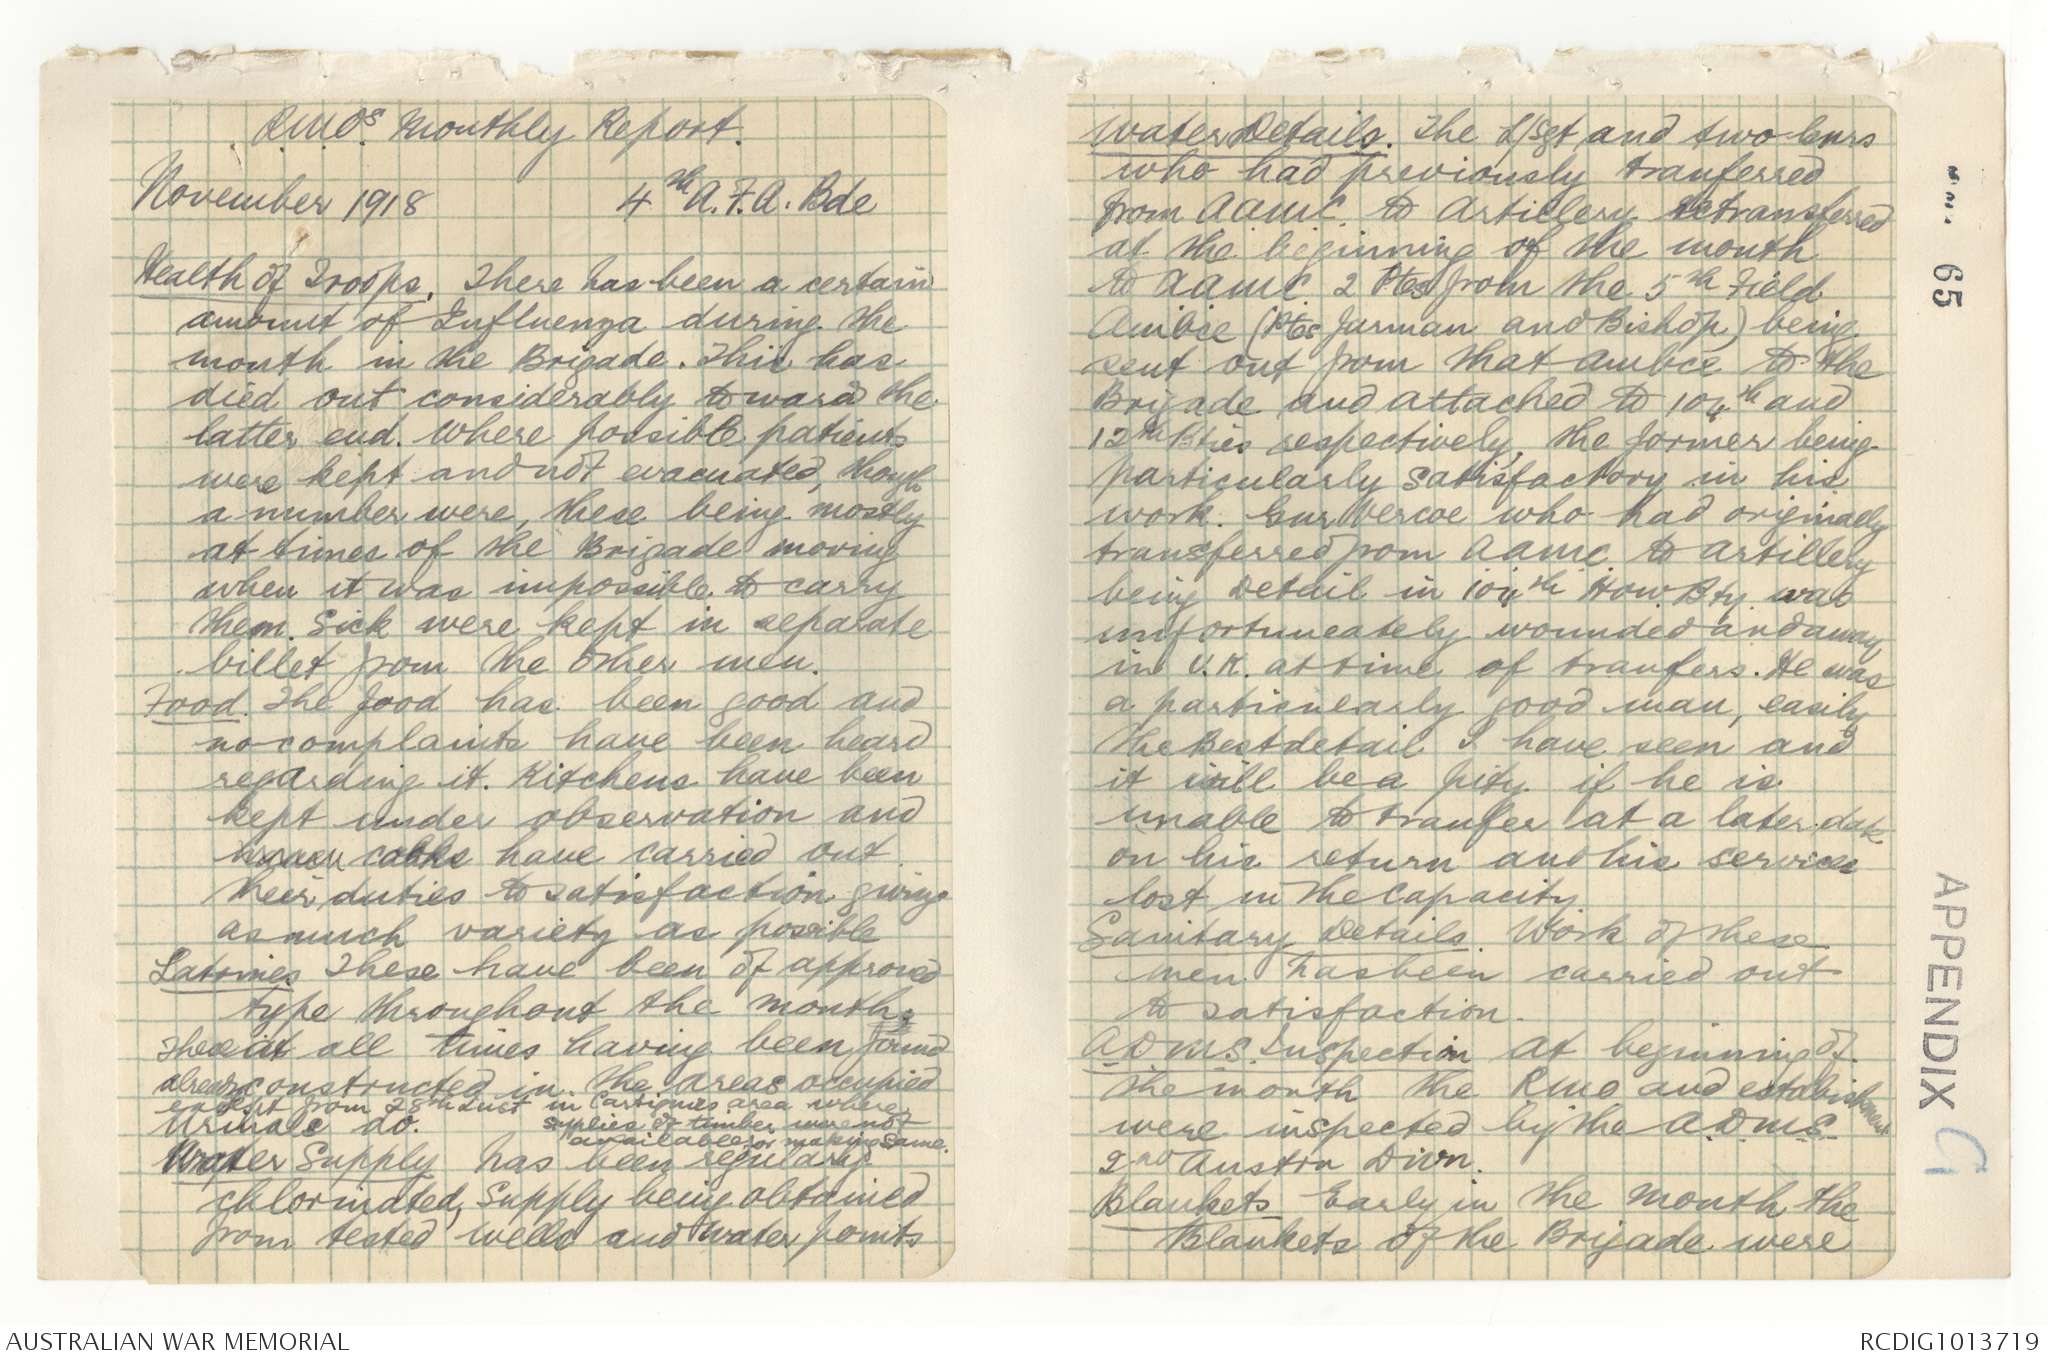 R.M.O's Monthly Report.
November 1918 4th A.F.A. Bde
Health of Troops. There has been a certain
amount of Influenza during the
month in the Brigade. This has
died out considerably toward the
latter end. Where possible patients
were kept and not evacuated, though
a number were, these being mostly
at times of the Brigade moving
when it was impossible to carry
them. Sick were kept in separate
billet from the other men.
Food. The food has been good and
no complaints have been heard
regarding it. Kitchens have been
kept under observation and
cooks have carried out
their duties to satisfaction giving
as much variety as possible
Latrines These have been of approved
type throughout the month.
These at all times having been found
already constructed in the areas occupied
except from 28th Inst in Cartignies area where
Urinals do. supplies of timber were not
available for making same.
Water Supply has been regularly
chlorinated, supply being obtained
from tested wells and water points
Water Details. The L/Sgt and two Gnrs
who had previously tranferred
from AAMC to Artillery retransferred
at the beginning of the month
to AAMC. 2 Ptes from the 5th Field
Ambce (Ptes Jarman and Bishop) being
sent out from that Ambce to the
Brigade and attached to 104th and
12th Bties respectively, the former being
particularly satisfactory in his
work. Gnr Vercoe who had originally
transferred from AAMC to Artillery
being Detail in 104th How. Bty. was
unfortuneately wounded and away
in U.K. at time of tranfers. He was
a particularly good man, easily
the Best detail I have seen and
it will be a pity if he is
unable to tranfer at a later date
on his return and his services
lost in the Capacity
Sanitary Details. Work of these
men has been carried out
to satisfaction.
ADMS. Inspection At beginning of
the month the RMO and establishment
were inspected by the A.D.M.S.
2nd Austrn Divn.
Blankets Early in the month the
Blankets of the Brigade were
65
APPENDIX G
AUSTRALIAN WAR MEMORIAL
RCDIG1013719